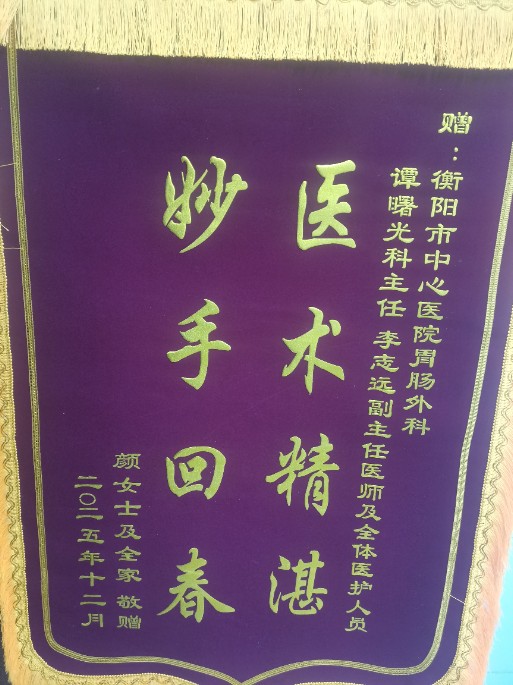 赠：衡阳市中心医院胃肠外科
谭曙光科主任 李志远副主任医师及全体医护人员
医术精湛
妙手回春
颜女士及全家 敬赠
二〇二五年十二月